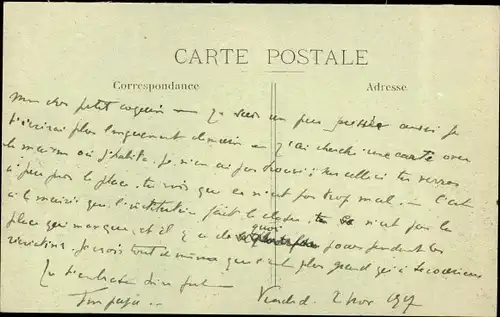 CARTE POSTALE
Correspondance
Adresse
Mon cher petit coquin — Je suis un peu pressée aussi je
t'écrirai plus longuement demain — J'ai cherché une carte avec
la maison où j'habite. Je n'en ai pas trouvé; sur celle-ci tu verras
à peu près la place. tu vois que ce n'est pas trop mal. — C'est
à la mairie que l'institutrice fait la classe. tu n'est pas la
place qui manque, et il y a de quoi jouer pendant les
récréations. Je crois tout de même que c'est plus grand qu'à
Je t'embrasse bien fort
Ton papa —
Vendredi 2 Nov 1917